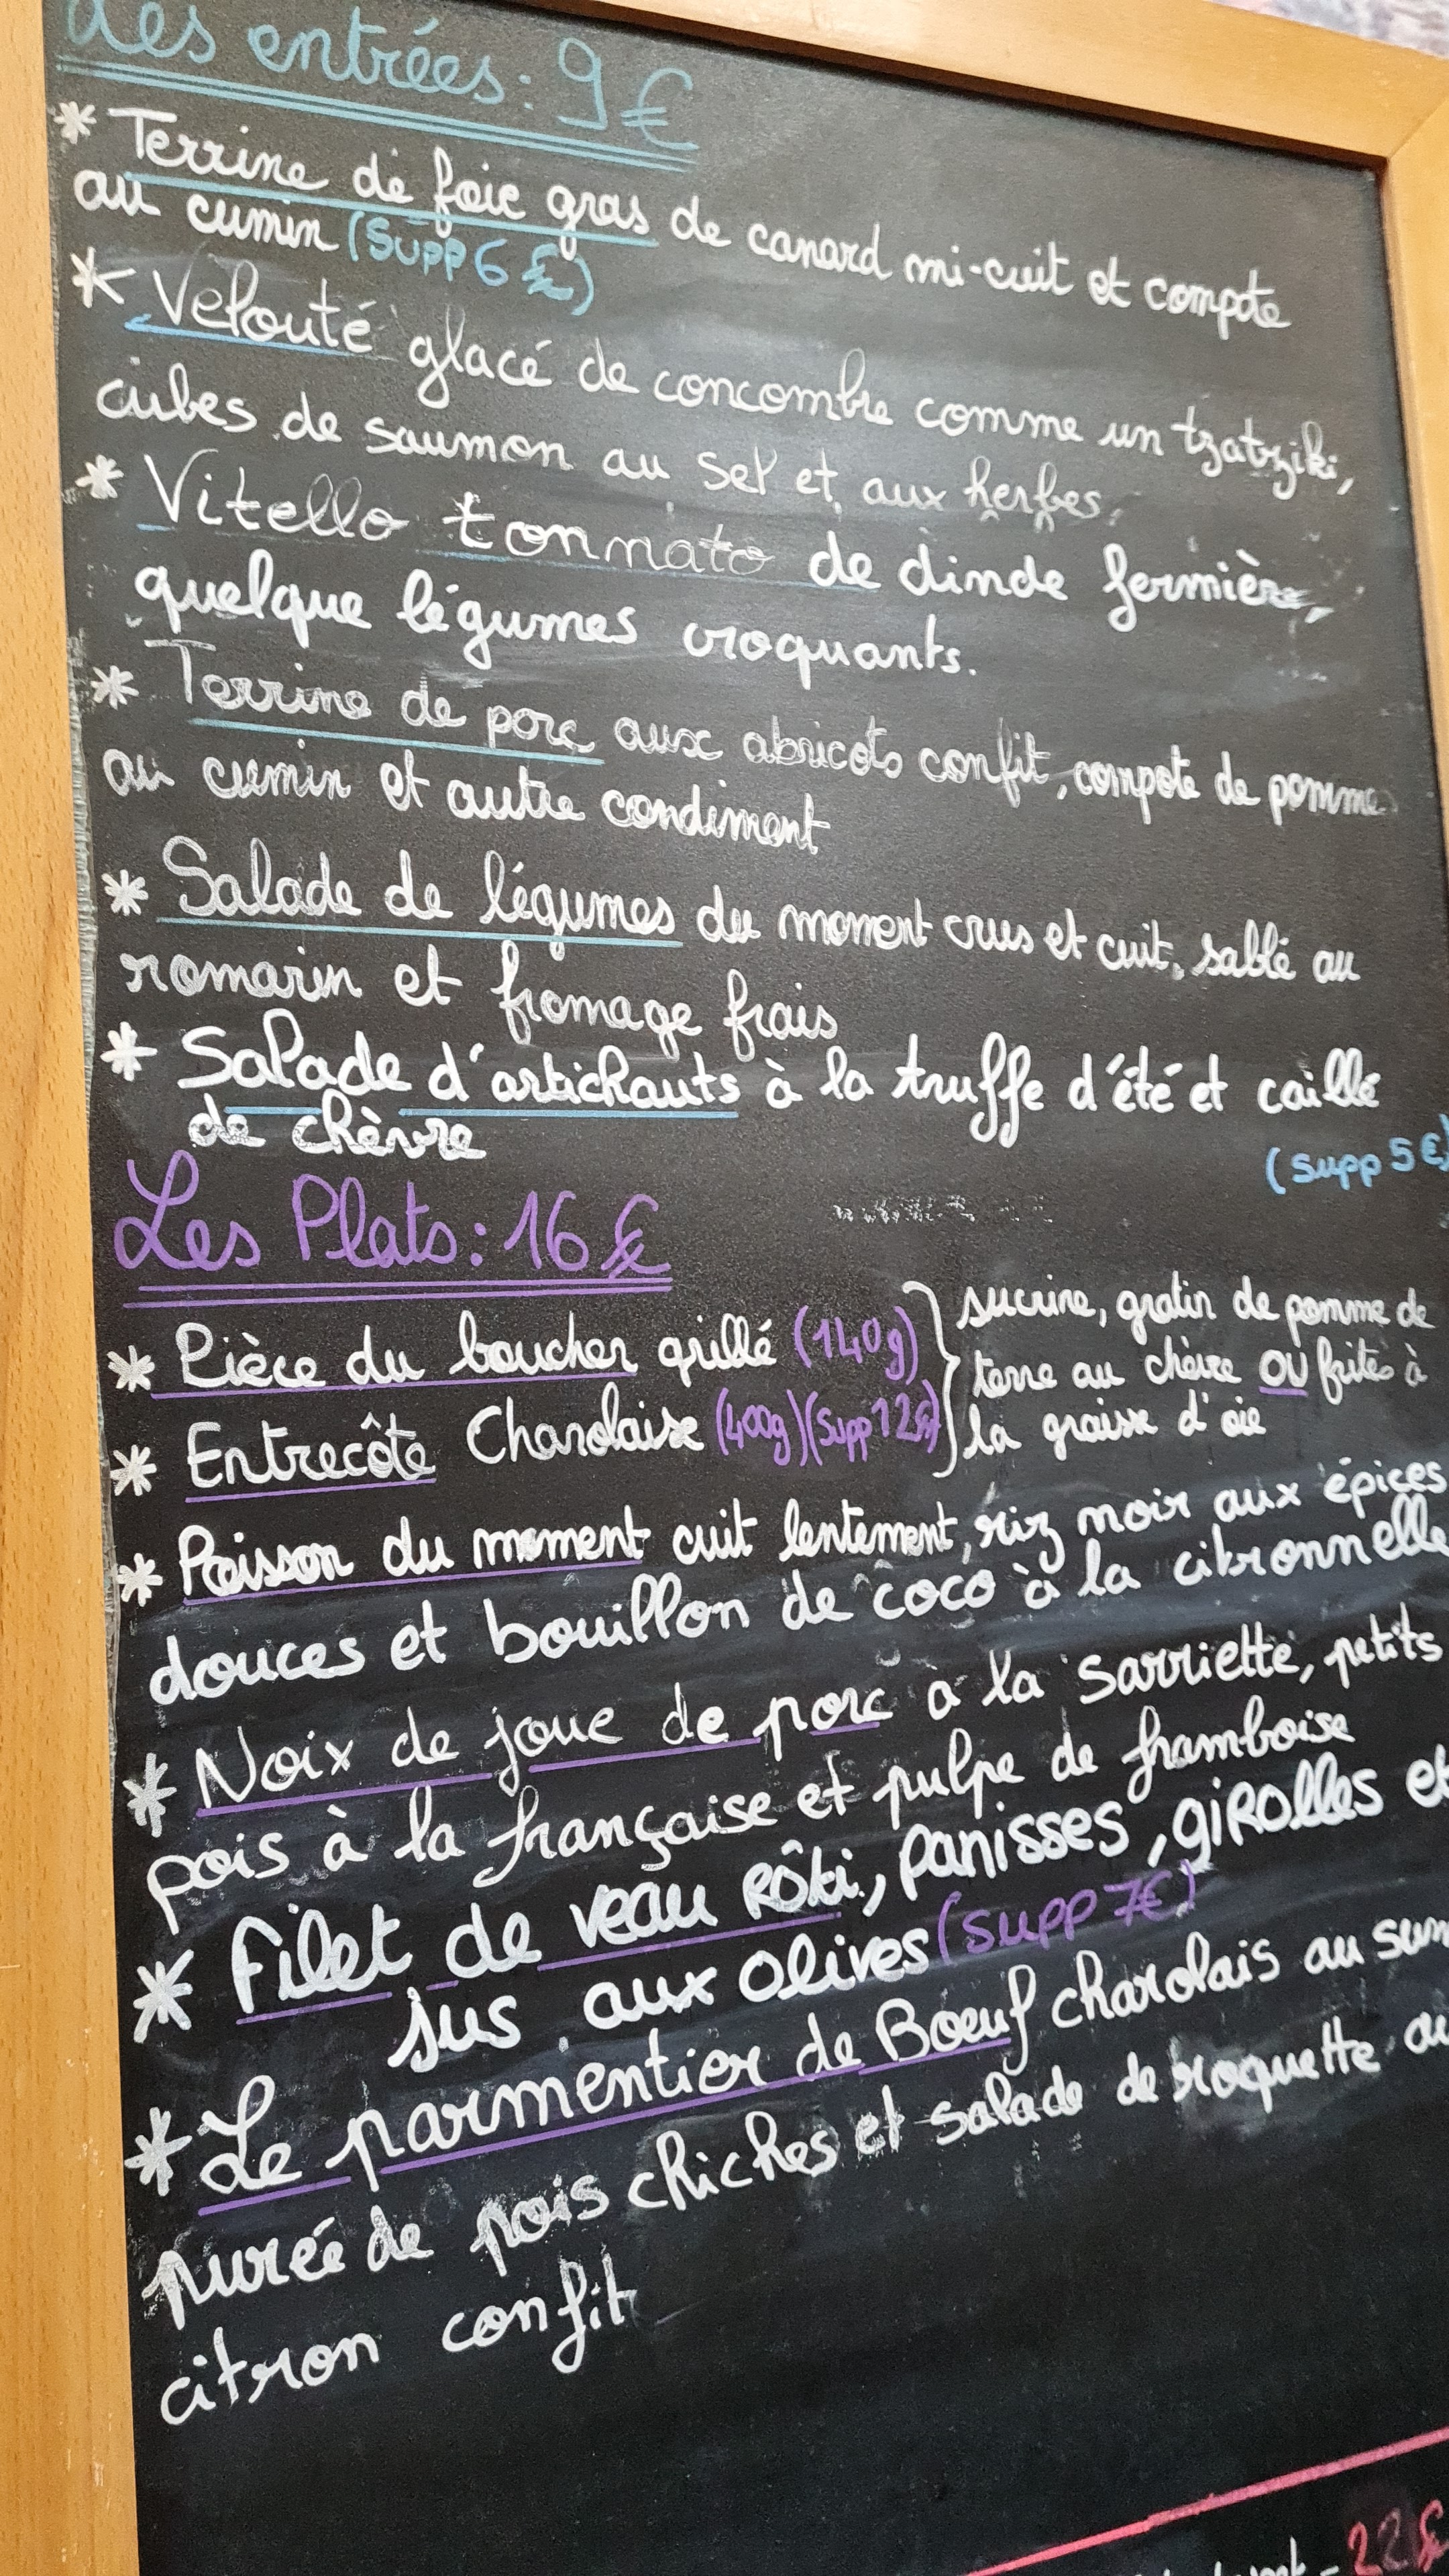 Les entrées : 9€
* Terrine de foie gras de canard mi-cuit et compote
au cumin (Supp 6 €)
* Velouté glacé de concombre comme un tzatziki,
cubes de saumon au sel et aux herbes.
* Vitello tonnato de dinde fermière,
quelque légumes croquants.
* Terrine de porc aux abricots confit, compote de pomme
au cumin et autre condiment
* Salade de légumes du moment crus et cuit, sablé au
romarin et fromage frais
* Salade d'artichauts à la truffe d'été et caillé
de chèvre
(Supp 5 €)
Les Plats : 16 €
* Pièce du boucher grillé (140g)
* Entrecôte Charolaise (400g) (Supp 12€)
sucrine, gratin de pomme de
terre au chèvre OU frites à
la graisse d'oie
* Poisson du moment cuit lentement, riz noir aux épices
douces et bouillon de coco à la citronnelle
* Noix de joue de porc à la sarriette, petits
pois à la française et pulpe de framboise
* Filet de veau rôti, panisses, girolles et
jus aux olives (Supp 7€)
* Le parmentier de Boeuf charolais au
purée de pois chiches et salade de roquette au
citron confit
22€